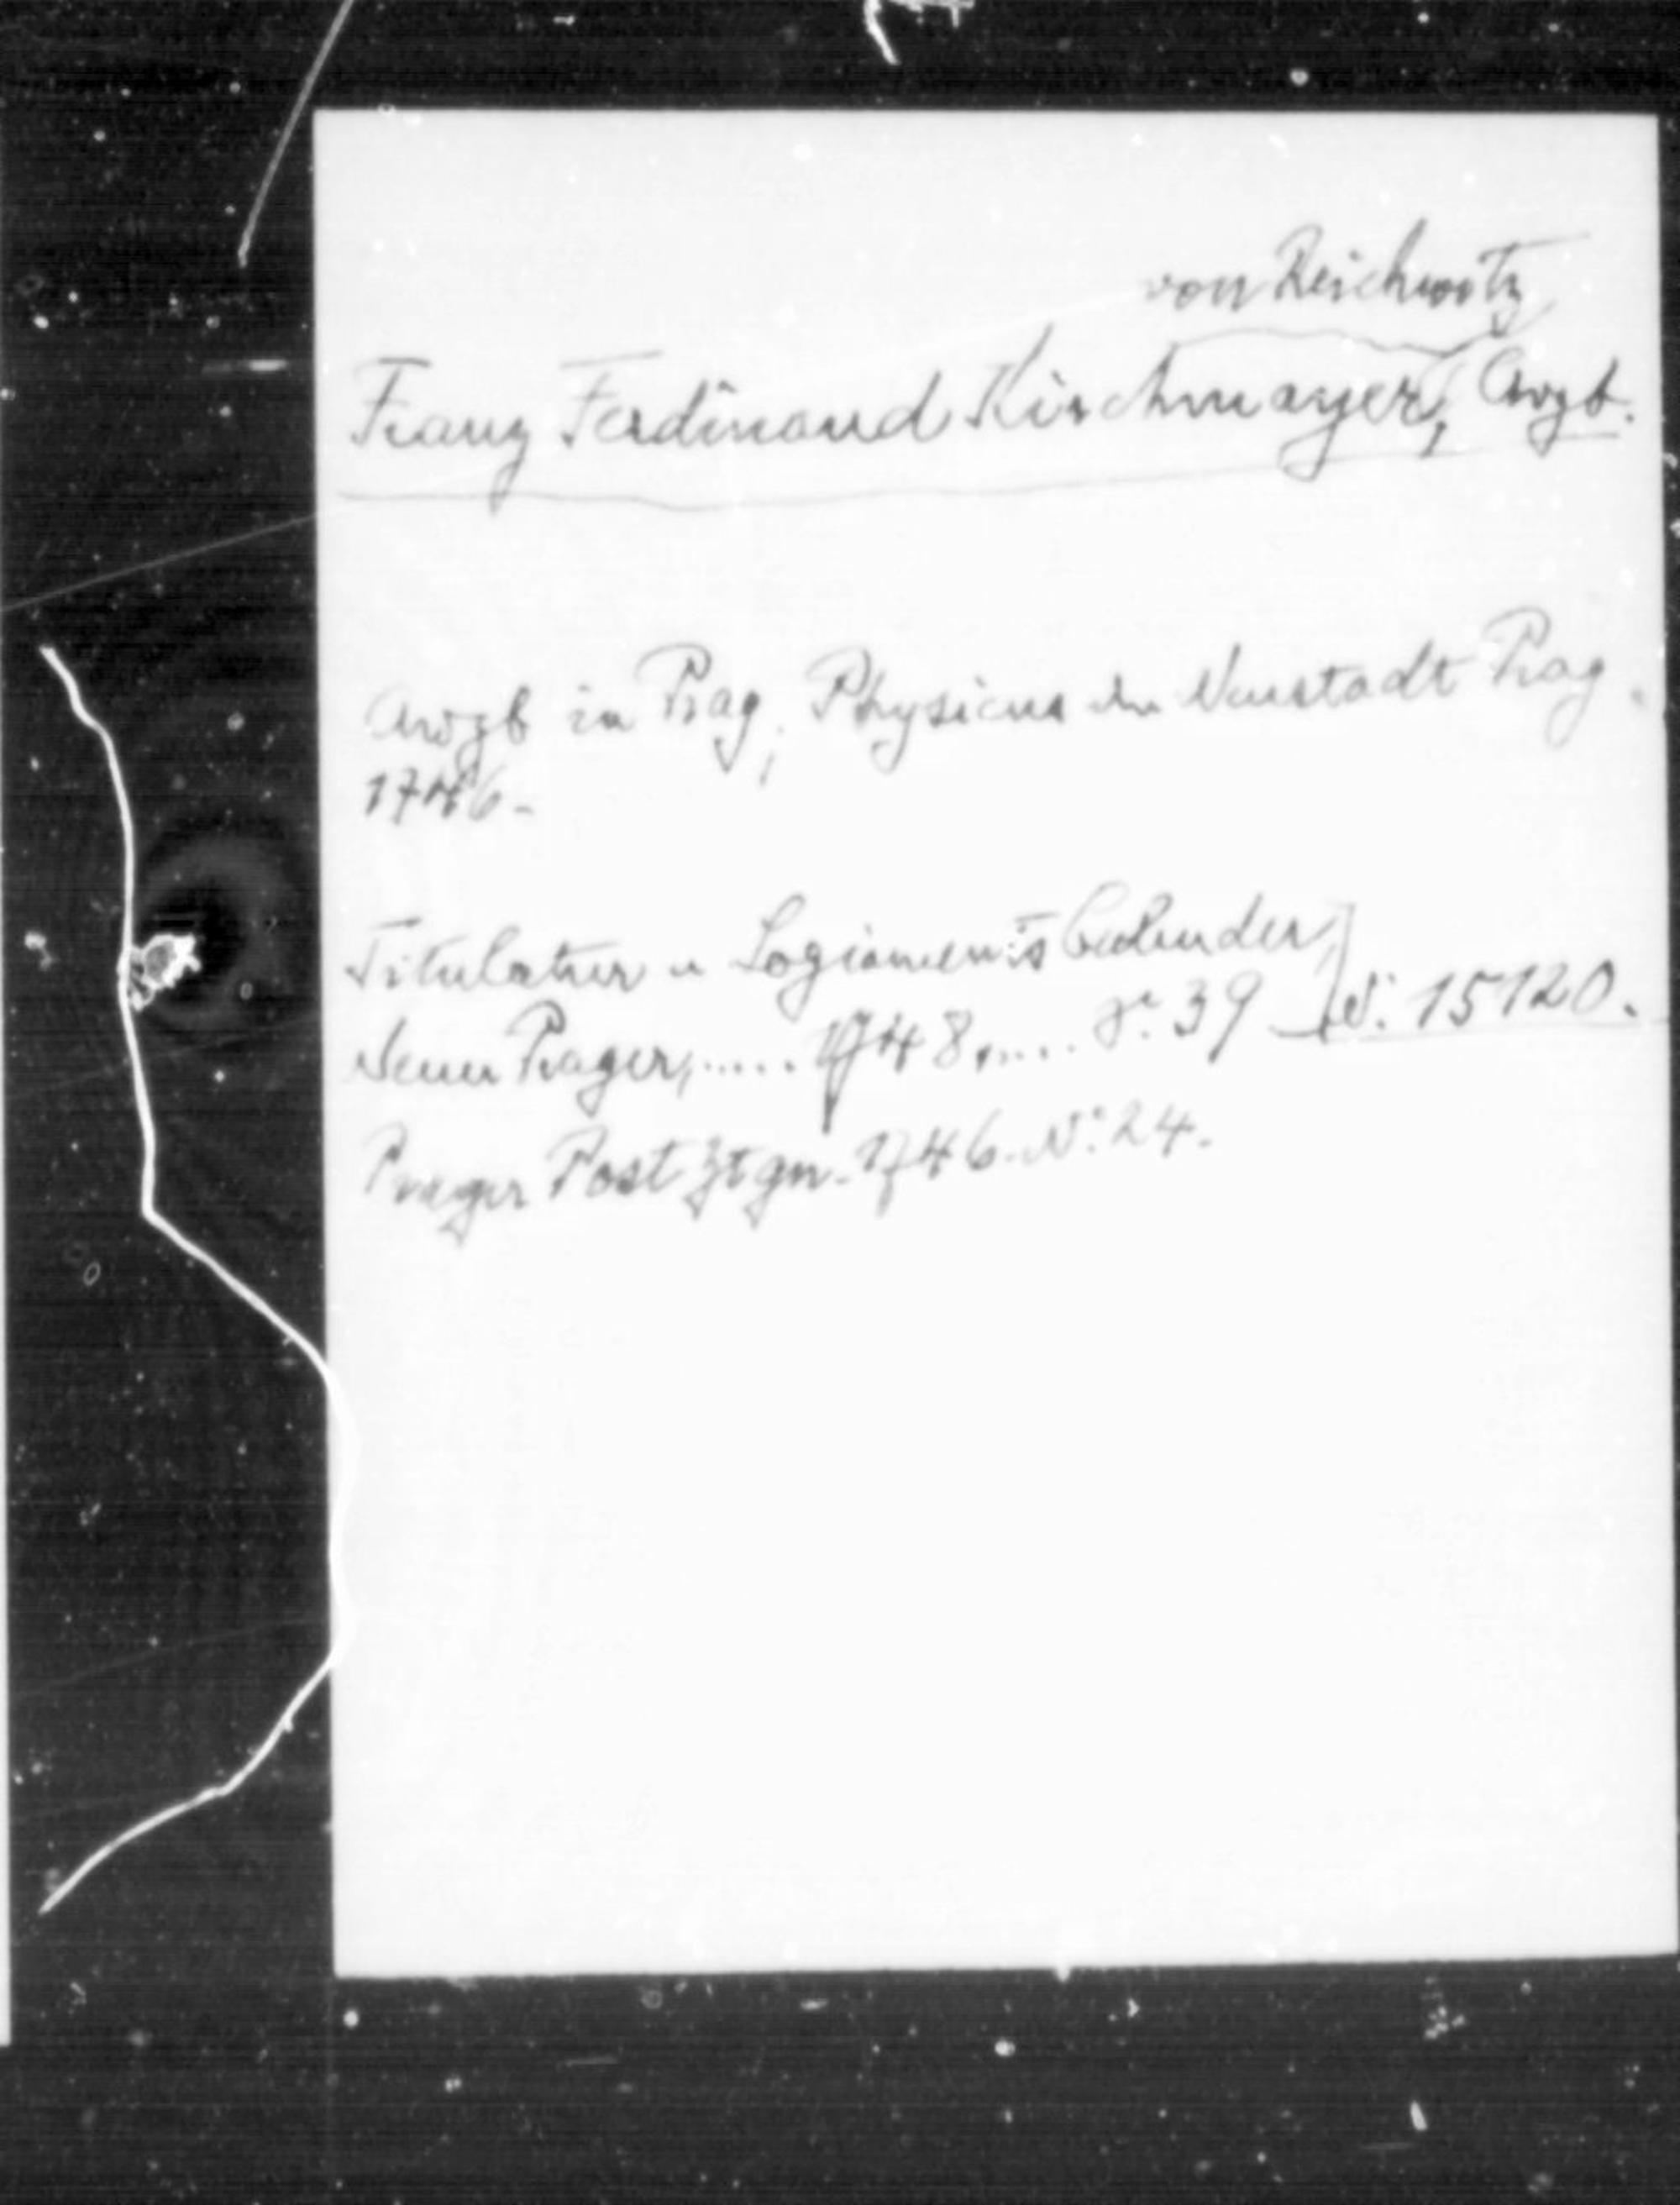 von Reichwitz
Franz Ferdinand Kirchmayer, Arzt.
Arzt in Prag; Physicus der Neustadt Prag.
1746.
Titulatur u Logiament's Calender,
Neuer Prager,..... 1748,.... S. 39 N. 15120.
Prager Post Ztgn. 1746. N: 24.